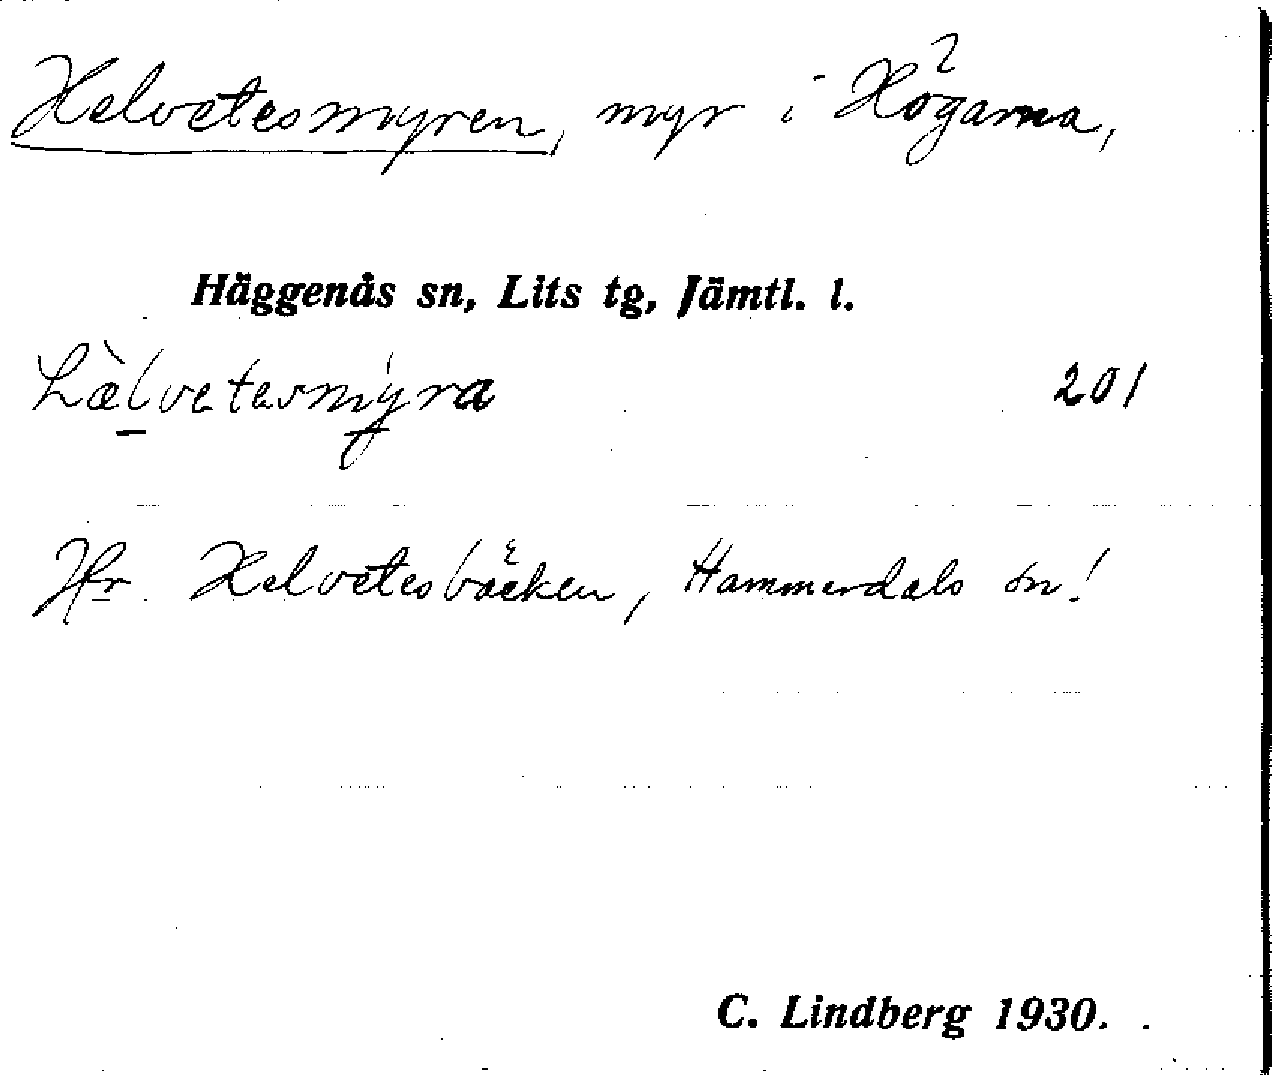 Helvetesmyren, myr i Högarna,
Häggenås sn, Lits tg, Jämtl. l.
hæ̀lvetesmýra 201
Jfr. Helvetesbäcken, Hammerdals sn!
C. Lindberg 1930.